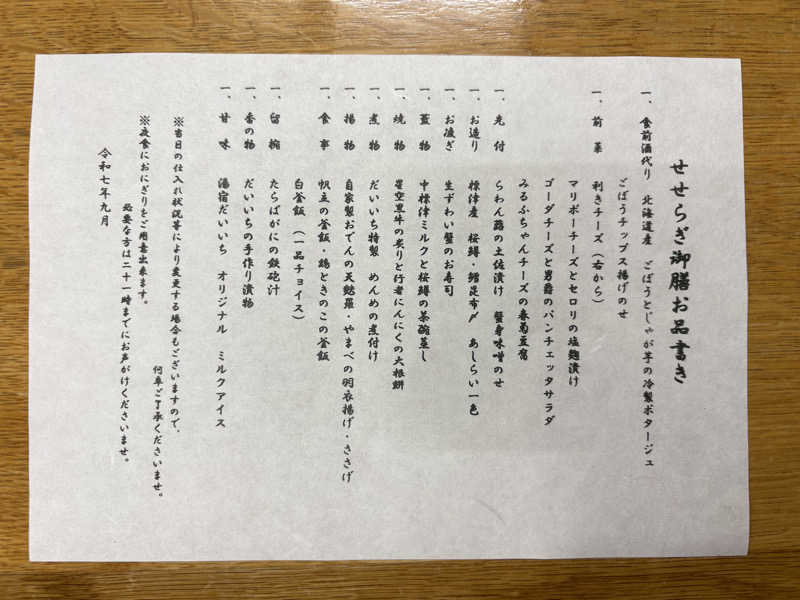 せせらぎ御膳お品書き
一、食前酒代り　北海道産　ごぼうとじゃが芋の冷製ポタージュ
ごぼうチップス揚げのせ
一、前菜　利きチーズ（右から）
マリボーチーズとセロリの塩麹漬け
ゴーダチーズと男爵のパンチェッタサラダ
みるふちゃんチーズの春菊豆腐
一、先付　らわん蕗の土佐漬け　蟹身味噌のせ
一、お造り　標津産　桜鱒・鱈昆布〆　あしらい一色
一、お凌ぎ　生ずわい蟹のお寿司
一、蓋物　中標津ミルクと桜鱒の茶碗蒸し
一、焼物　星空黒牛の炙りと行者にんにくの大根餅
一、煮物　だいいち特製　めんめの煮付け
一、揚物　自家製おでんの天麩羅・やまべの羽衣揚げ・ささげ
一、食事　帆立の釜飯・鶏ときのこの釜飯
白釜飯（一品チョイス）
一、留椀　たらばがにの鉄砲汁
一、香の物　だいいちの手作り漬物
一、甘味　湯宿だいいち　オリジナル　ミルクアイス
※当日の仕入れ状況等により変更する場合もございますので、
何卒ご了承くださいませ。
※夜食におにぎりをご用意出来ます。
必要な方は二十一時までにお声がけくださいませ。
令和七年九月